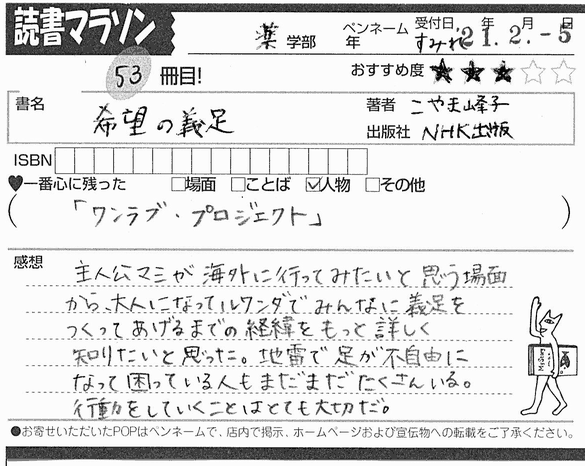 読書マラソン
薬 学部 年 ペンネーム すみれ 受付日 '21年 2.月 -5日
53 冊目! おすすめ度 ★★★☆☆
書名 希望の義足
著者 こやま峰子
出版社 NHK出版
ISBN
♥一番心に残った □場面 □ことば ☑人物 □その他
(「ワンラブ・プロジェクト」)
感想
主人公マミが海外に行ってみたいと思う場面
から、大人になってルワンダでみんなに義足を
つくってあげるまでの経緯をもっと詳しく
知りたいと思った。地雷で足が不自由に
なって困っている人もまだまだたくさんいる。
行動をしていくことはとても大切だ。
●お寄せいただいたPOPはペンネームで、店内で掲示、ホームページおよび宣伝物への転載をご了承ください。